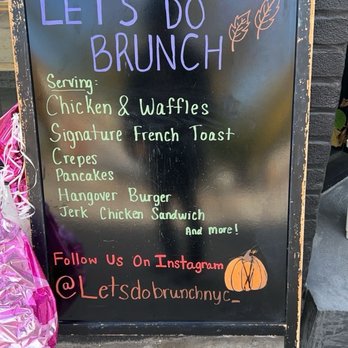 LETS DO
BRUNCH
Serving:
Chicken & Waffles
Signature French Toast
Crepes
Pancakes
Hangover Burger
Jerk Chicken Sandwich
And more!
Follow Us On Instagram
@Letsdobrunchnyc_